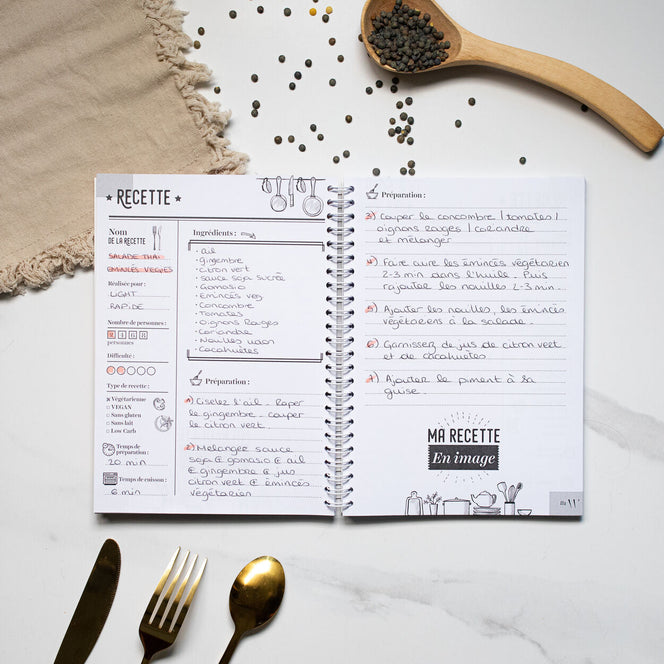 ★ RECETTE ★
Nom
DE LA RECETTE
SALADE THAI
EMINCÉS VEGIES
Réalisée pour :
LIGHT
RAPIDE
Nombre de personnes :
personnes
Difficulté :
Type de recette :
Végétarienne
VEGAN
Sans gluten
Sans lait
Low Carb
Temps de
préparation :
20 min
Temps de cuisson :
6 min
Ingrédients :
• ail
• gingembre
• citron vert
• sauce soja sucrée
• Gomasio
• Emincés veg
• Concombre
• Tomates
• Oignons Rouges
• Coriandre
• Nouilles udon
• Cacahuètes
Préparation :
1) Ciselez l'ail. Raper
le gingembre. couper
le citron vert
2) Mélangez sauce
soja & gomasio & ail
& gingembre & jus
citron vert & émincés
végétarien
Préparation :
3) Couper le concombre / tomates /
oignons rouges / coriandre
et mélanger
4) Faire cuire les émincés végétarien
2-3 min dans l'huile. Puis
rajouter les nouilles 2-3 min.
5) Ajouter les nouilles, les émincés
végétariens à la salade.
6) Garnissez de jus de citron vert
et de cacahuètes
7) Ajouter le piment à sa
guise.
MA RECETTE
En image